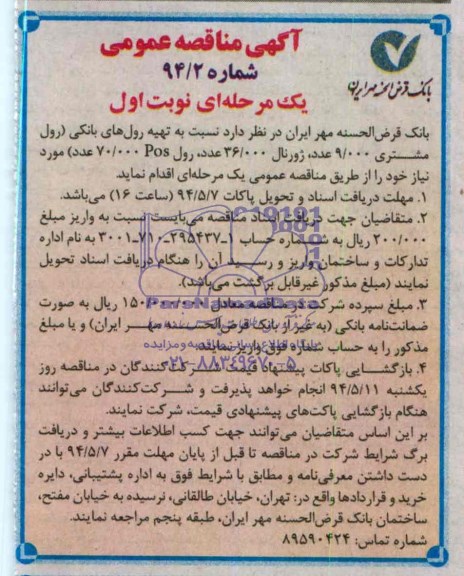 آگهی مناقصه عمومی
شماره ۹۴/۲
یک مرحله‌ای نوبت اول
بانک قرض‌الحسنه مهر ایران
بانک قرض‌الحسنه مهر ایران در نظر دارد نسبت به تهیه رول‌های بانکی (رول
مشتری ۹/۰۰۰ عدد، ژورنال ۳۶/۰۰۰ عدد، رول Pos ۷۰/۰۰۰ عدد) مورد
نیاز خود را از طریق مناقصه عمومی یک مرحله‌ای اقدام نماید.
۱. مهلت دریافت اسناد و تحویل پاکات ۹۴/۵/۷ (ساعت ۱۶) می‌باشد.
۲. متقاضیان جهت دریافت اسناد مناقصه می‌بایست نسبت به واریز مبلغ
۲۰۰/۰۰۰ ریال به شماره حساب ۱_۲۹۵۴۳۷_۷۱۰_۳۰۰۱ به نام اداره
تدارکات و ساختمان واریز و رسید آن را هنگام دریافت اسناد تحویل
نمایند (مبلغ مذکور غیرقابل برگشت می‌باشد).
۳. مبلغ سپرده شرکت در مناقصه معادل ریال به صورت
ضمانت‌نامه بانکی (به غیر از بانک قرض‌الحسنه مهر ایران) و یا مبلغ
مذکور را به حساب شماره فوق واریز نمایند.
۴. بازگشایی پاکات پیشنهاد قیمت شرکت‌کنندگان در مناقصه روز
یکشنبه ۹۴/۵/۱۱ انجام خواهد پذیرفت و شرکت‌کنندگان می‌توانند
هنگام بازگشایی پاکت‌های پیشنهادی قیمت، شرکت نمایند.
بر این اساس متقاضیان می‌توانند جهت کسب اطلاعات بیشتر و دریافت
برگ شرایط شرکت در مناقصه تا قبل از پایان مهلت مقرر ۹۴/۵/۷ با در
دست داشتن معرفی‌نامه و مطابق با شرایط فوق به اداره پشتیبانی، دایره
خرید و قراردادها واقع در: تهران، خیابان طالقانی، نرسیده به خیابان مفتح،
ساختمان بانک قرض‌الحسنه مهر ایران، طبقه پنجم مراجعه نمایند.
شماره تماس: ۸۹۵۹۰۴۲۴
ParsNamadData
۰۲۱-۸۸۳۴۹۶۷۰-۵